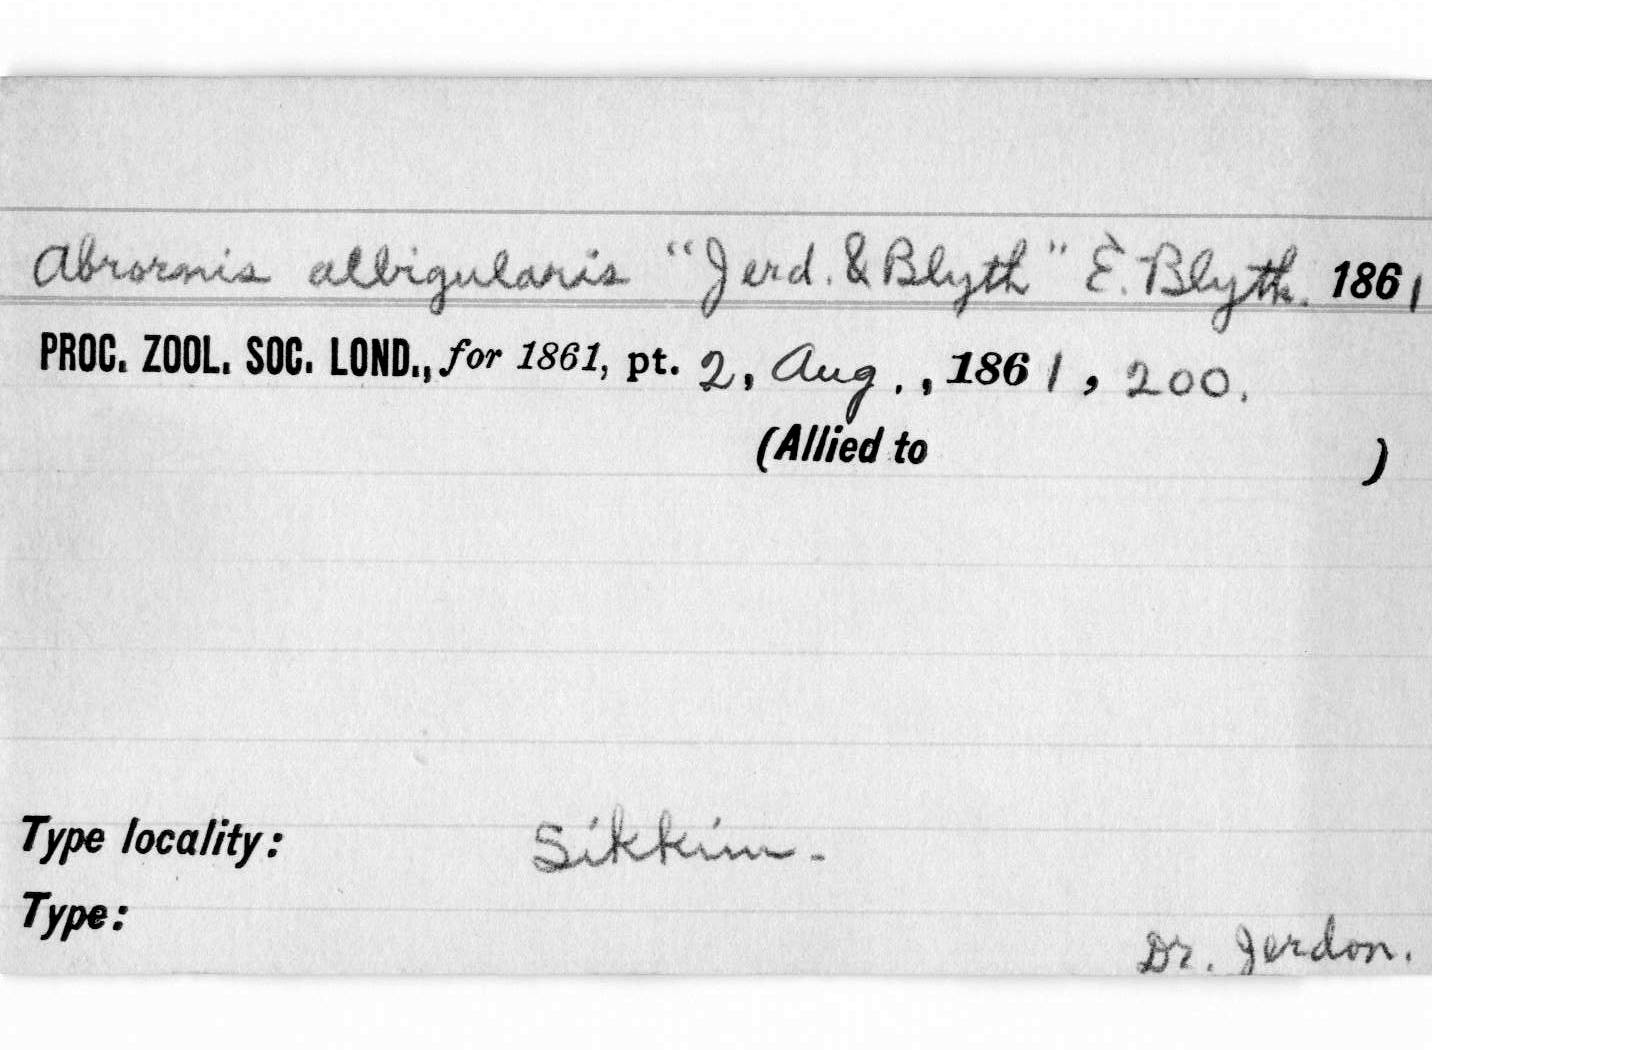 Abrornis albigularis "Jerd. & Blyth" E. Blyth. 1861
PROC. ZOOL. SOC. LOND., for 1861, pt. 2, Aug., 1861, 200.
(Allied to )
Type locality: Sikkim.
Type:
Dr. Jerdon.